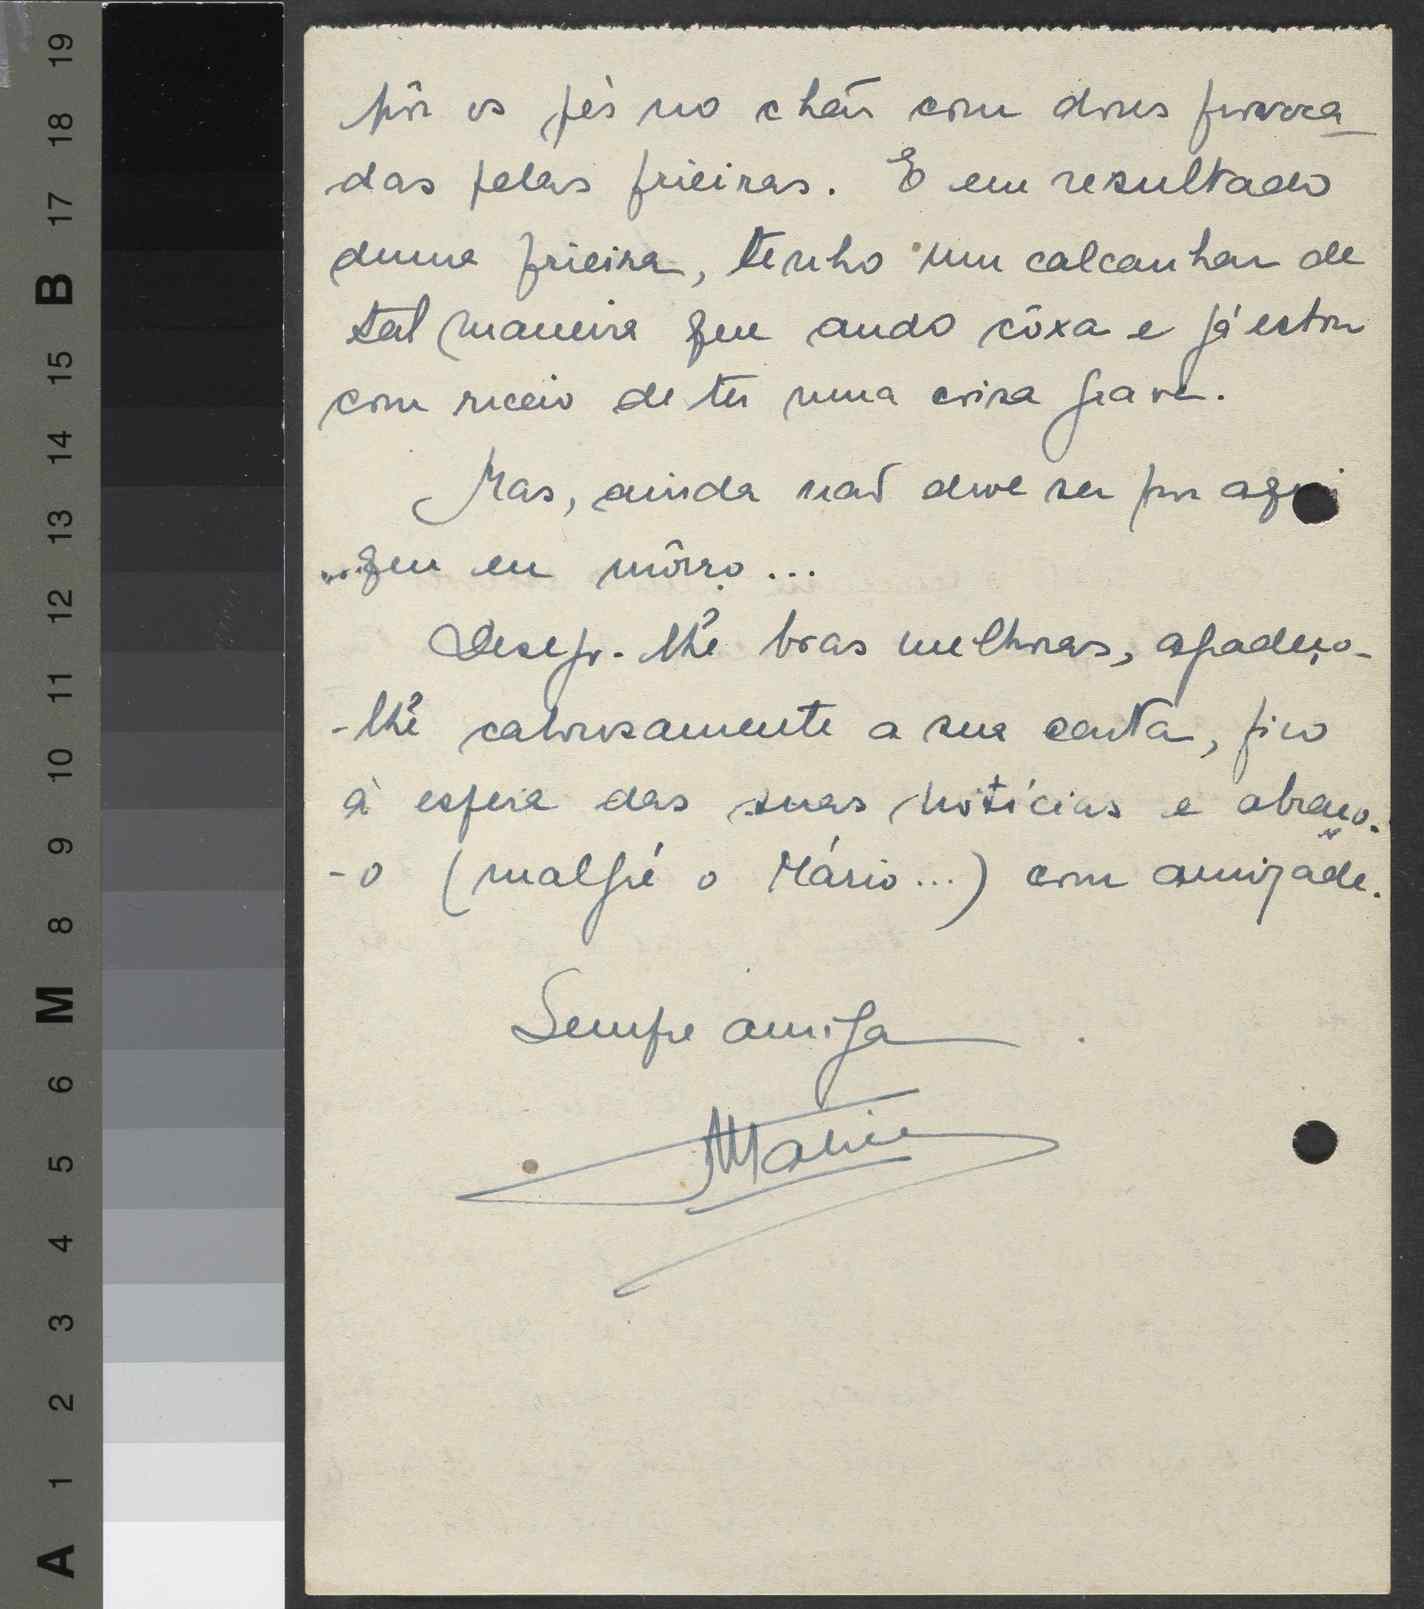 pôr os pés no chão com dores provoca_
das pelas frieiras. E em resultado
duma frieira, tenho um calcanhar de
tal maneira que ando côxa e já estou
com receio de ter uma coisa grave.
Mas, ainda não deve ser por aqui
que eu môrro...
Desejo-lhe boas melhoras, agradeço-
-lhe calorosamente a sua carta, fico
à espera das suas notícias e abraço-
-o (malgré o Mário...) com amizade.
Sempre amiga
Maria
19
18
17
B
15
14
13
12
11
10
9
8
M
6
5
4
3
2
1
A